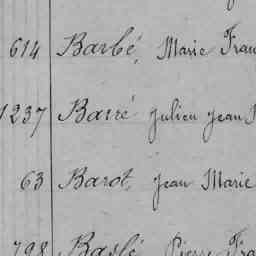 614 Barbé, Marie Fran
1237 Barré Julien Jean
63 Barot, Jean Marie
798 Baslé Pierre Fra